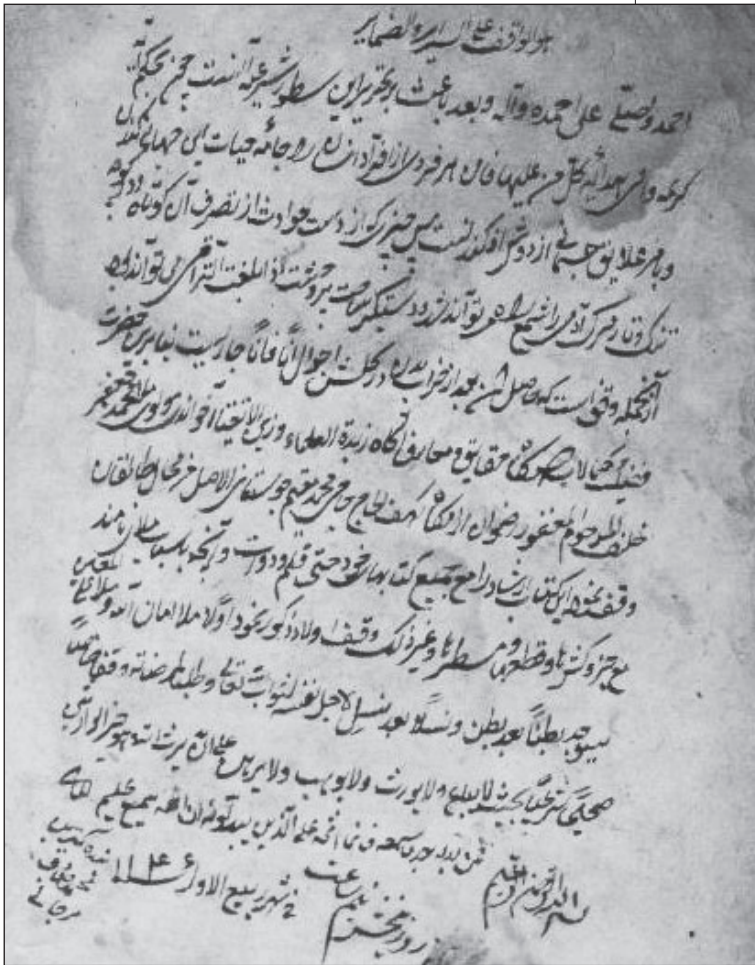 هو الواقف علی السرایر والضمایر
احمده و اصلی علی احمده و آله و بعد باعث بر تحریر این سطور شرعیه آنست چون بحکم آیه
کریمه و انی هدایه کل من علیها فان هر فردی از افراد انسان را جامه حیات این جهان کندن
و بار علایق جسمانی از دوش افکندنست پس چیزی که از دست حوادث از تصرف آن کوتاه بود که
تنک و تار مرک آدمی را شمع راه تواند شد و دستکیر
آنجمله وقفی است که حاصل آن بعد از خراب بدن در کلشن احوال آنا فآنا جاریست بنابرین حضرت
فضیلت و کمالات دستکاه حقایق و معارف آکاه زبدة العلماء و زین الاتقیا آخوندی مولوی ملا محمد جعفر
خلف المرحوم المغفور رضوان آرامکاه اشرف الحاج حاجی محمد مقیم جوستانی الاصل من محال طالقان
وقف نمود این کتاب ارشاد را مع جمیع کتابهای خود حتی قلم و دوات و آنچه باسباب ملائی نامند
مع جزوکش ها و قطعها و مسطرها و غیر ذلک وقف اولاد ذکور نمود اولا ملا امان الله و ملا علی
سیوجد بطنا بعد بطن و نسلا بعد نسل لاجل نفسه لثواب الله تعالی و طلبا لمرضاته وقفا
صحیحا شرعیا بحیث لا یباع ولا یورث ولا یوهب ولا یرهن علی ان یرث الله وهو خیر الوارثین
فمن بدله بعد ما سمعه فانما اثمه علی الذین یبدلونه ان الله سمیع علیم
بسم الله الرحمن الرحیم
فی شهر ربیع الاول ۱۱۴۶
روز پنجشنبه